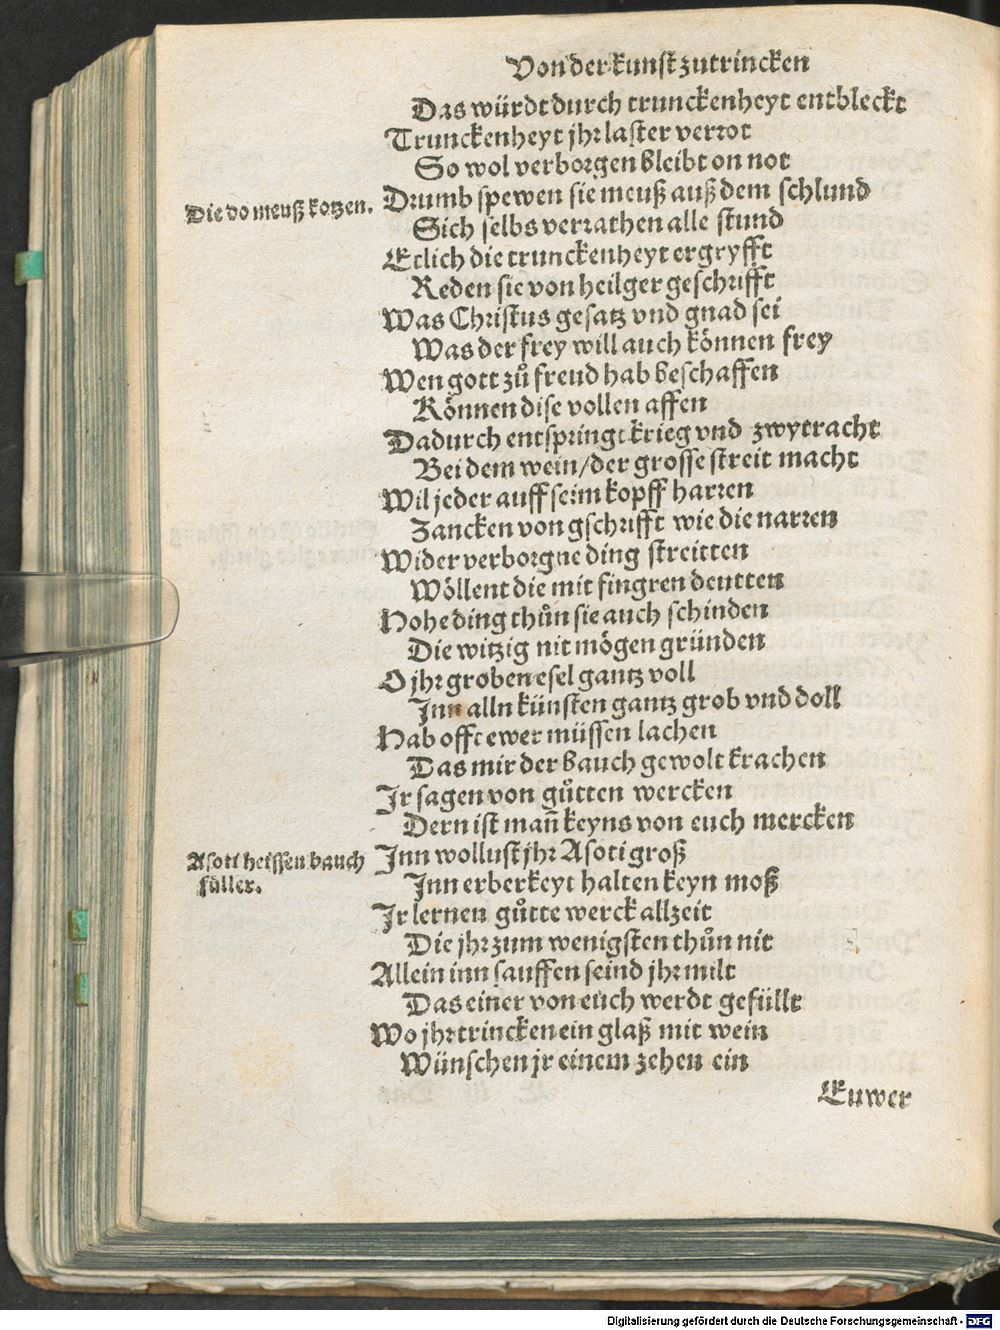 Von der kunst zutrincken
Das würdt durch trunckenheyt entbleckt
Trunckenheyt jhr laster verrot
So wol verborgen bleibt on not
Die do meuß kotzen.
Drumb spewen sie meuß auß dem schlund
Sich selbs verrathen alle stund
Etlich die trunckenheyt ergryfft
Reden sie von heilger geschrifft
Was Christus gesatz vnd gnad sei
Was der frey will auch können frey
Wen gott zů freud hab beschaffen
Können dise vollen affen
Dadurch entspringt krieg vnd zwytracht
Bei dem wein/der grosse streit macht
Wil jeder auff seim kopff harren
Zancken von gschrifft wie die narren
Wider verborgne ding streitten
Wöllent die mit fingren deutten
Hohe ding thůn sie auch schinden
Die witzig nit mögen gründen
O jhr groben esel gantz voll
Inn alln künsten gantz grob vnd doll
Hab offt ewer müssen lachen
Das mir der bauch gewolt krachen
Ir sagen von gůtten wercken
Dern ist mañ keyns von euch mercken
Asoti heissen bauch
füller.
Inn wollust jhr Asoti groß
Inn erberkeyt halten keyn moß
Ir lernen gůtte werck allzeit
Die jhr zum wenigsten thůn nit
Allein inn sauffen seind jhr milt
Das einer von euch werdt gefüllt
Wo jhr trincken ein glaß mit wein
Wünschen jr einem zehen ein
Euwer
Digitalisierung gefördert durch die Deutsche Forschungsgemeinschaft - DFG